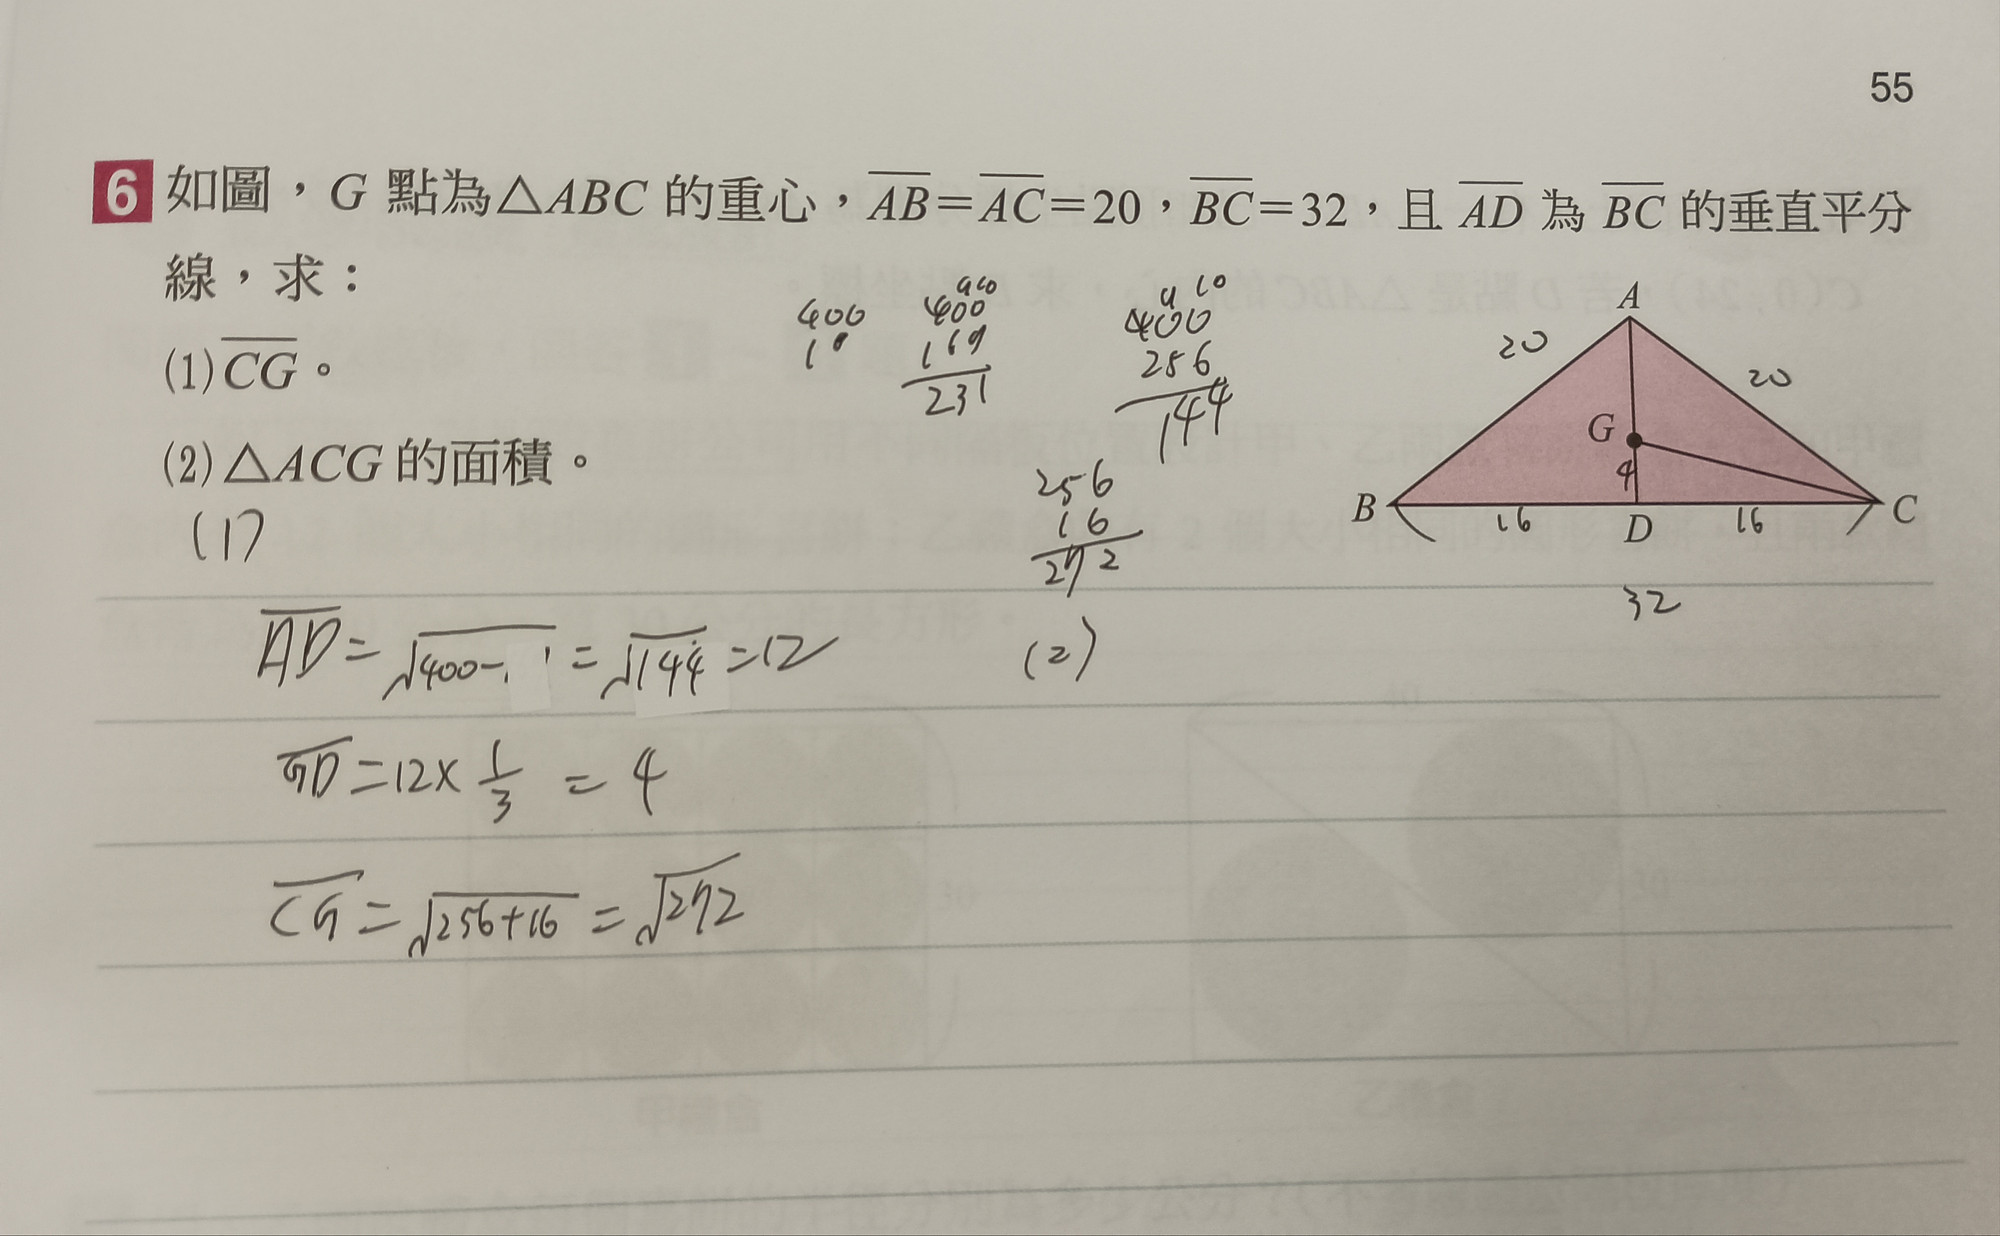 55
6 如圖，G 點為△ABC 的重心，AB=AC=20，BC=32，且 AD 為 BC 的垂直平分
線，求：
(1) CG。
(2) △ACG 的面積。
400
400
169
231
4 10
400
256
144
256
16
272
A
20
20
G
4
B
16
D
16
C
32
(1)
AD=√400- =√144=12
GD=12×1/3=4
CG=√256+16=√272
(2)